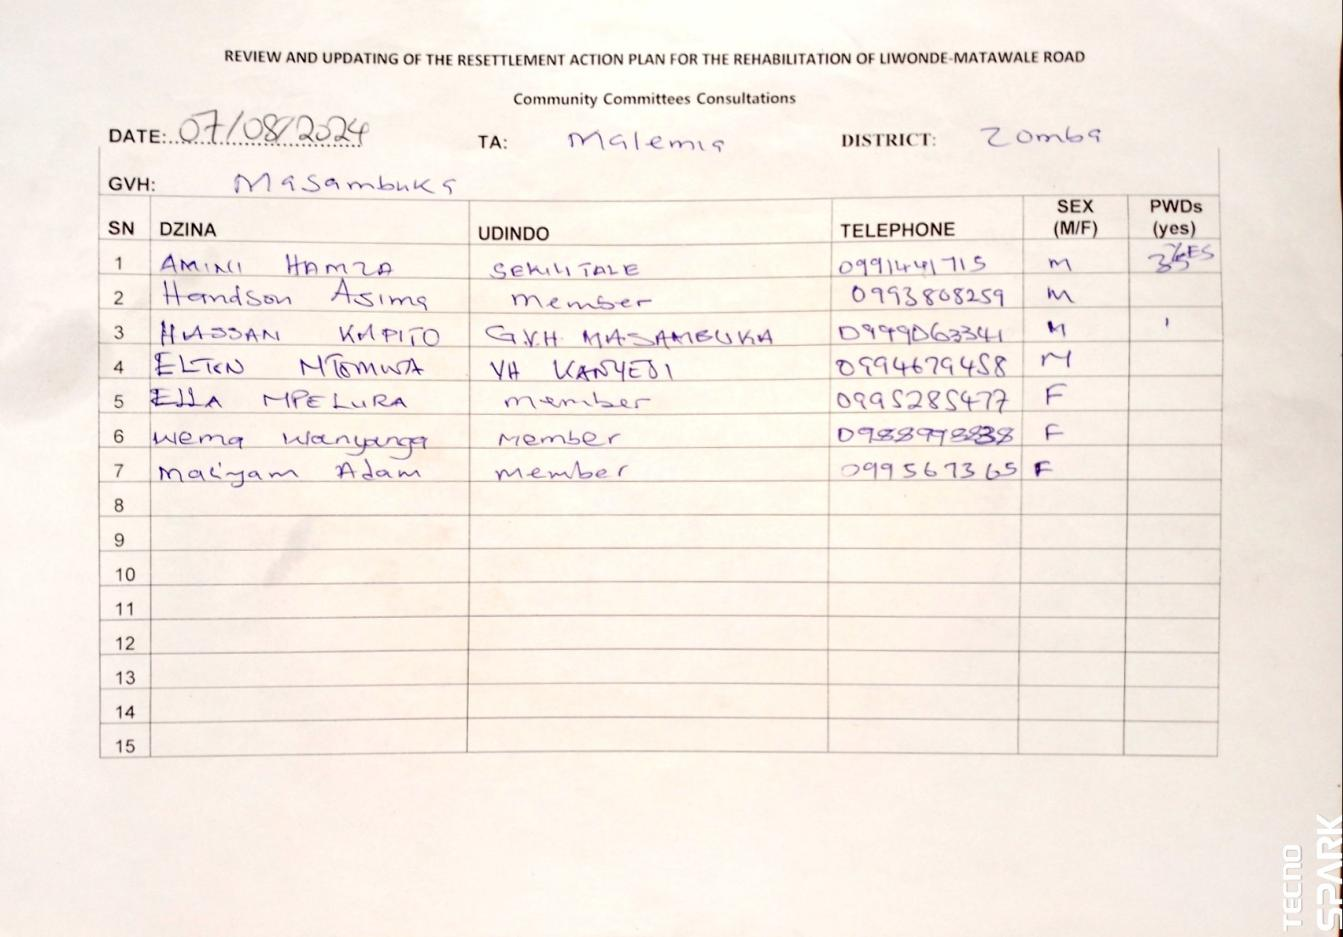 REVIEW AND UPDATING OF THE RESETTLEMENT ACTION PLAN FOR THE REHABILITATION OF LIWONDE-MATAWALE ROAD
Community Committees Consultations
DATE: 07/08/2024 TA: Malemia DISTRICT: Zomba
GVH: Masambuka
SN DZINA UDINDO TELEPHONE SEX (M/F) PWDs (yes)
1 AMINI HAMZA SEKILITALE 0991441715 M YES
2 Handson Asima member 0993808259 M
3 HASSAN KAPITO G.V.H. MASAMBUKA 0999063341 M
4 ELTON MTOMWA VH KANYEJI 0994679458 M
5 ELLA MPELURA member 0995285477 F
6 wema wanyanga member F
7 Maliyam Adam member 099567365 F
8
9
10
11
12
13
14
15
TECNO
SPARK